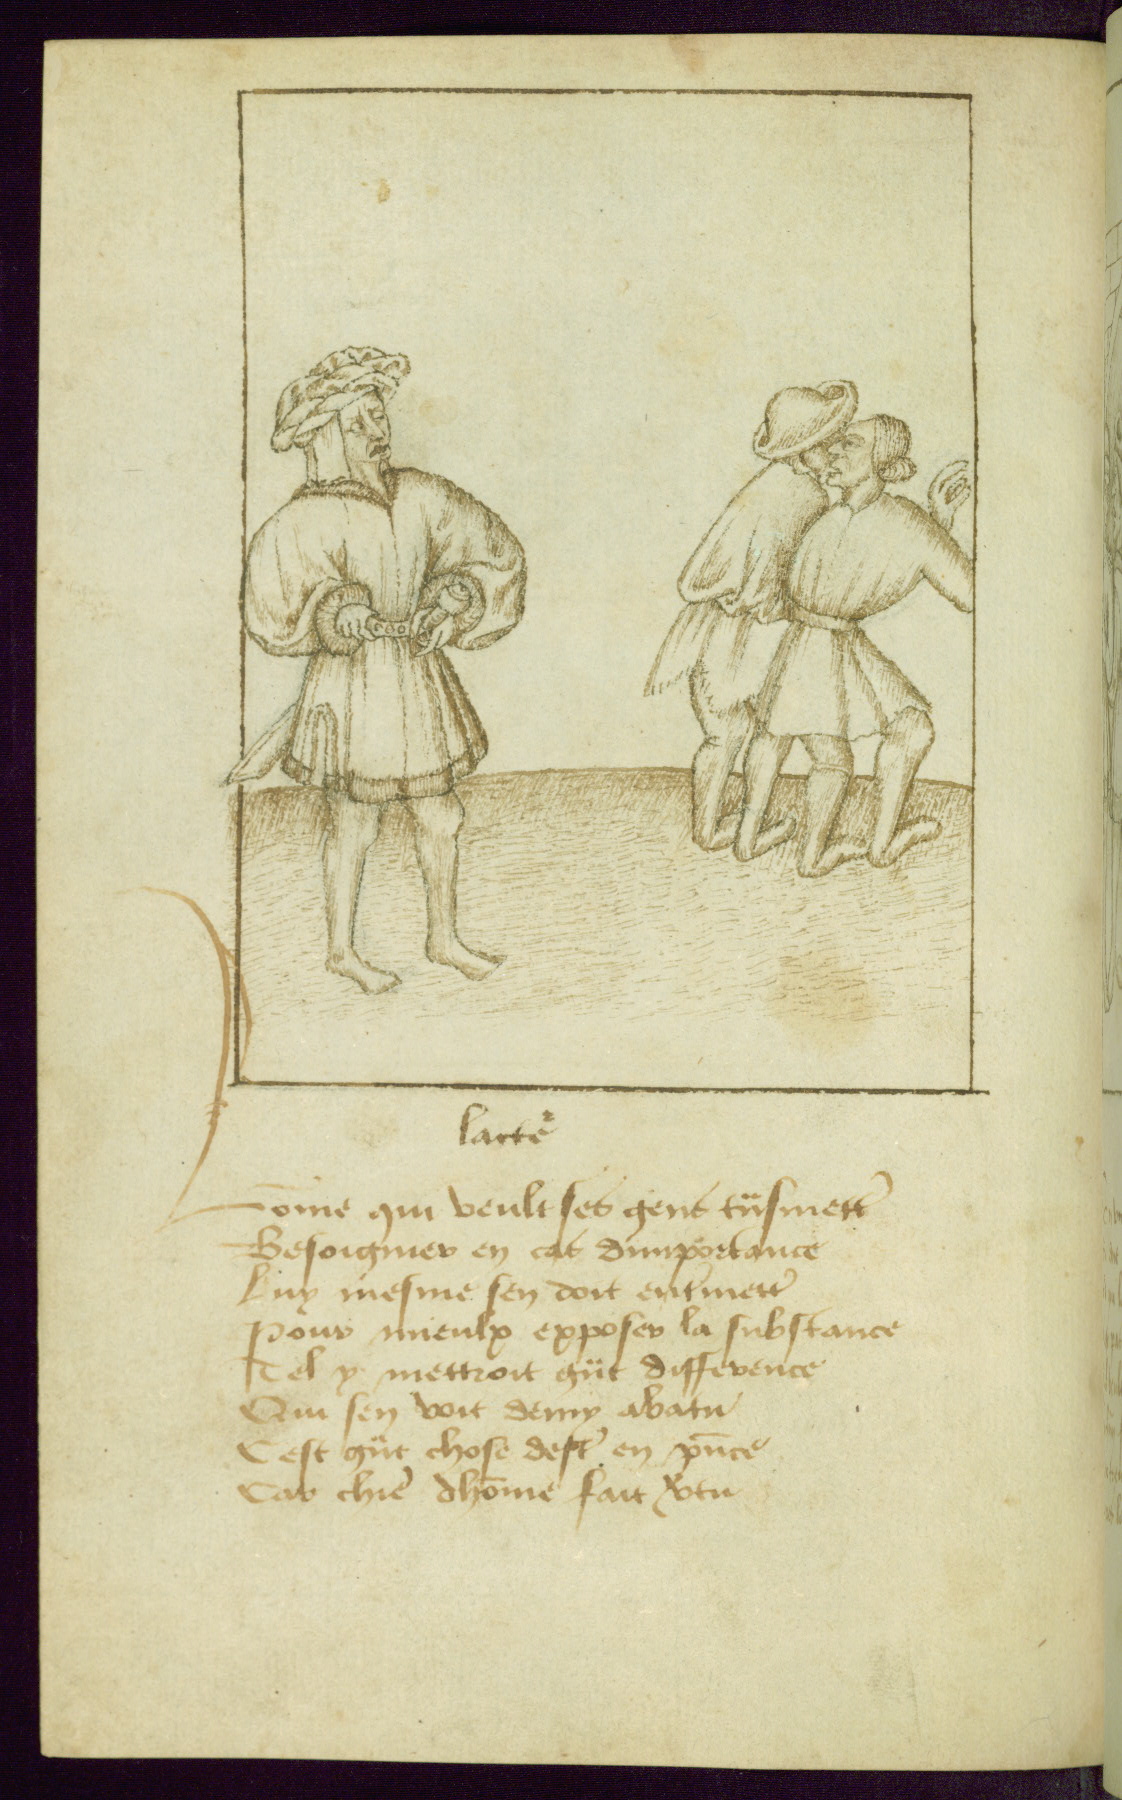 lacte
Home qui veult ses gens tnsmett
Besoigner en cas dimportance
Luy mesme sen doit entmett
Pour mieulx exposer la substance
Tel y mettroit gnt difference
Qui sen voit demy abatu
Cest gnt chose dest en pnce
Car chie dhome fait vtu